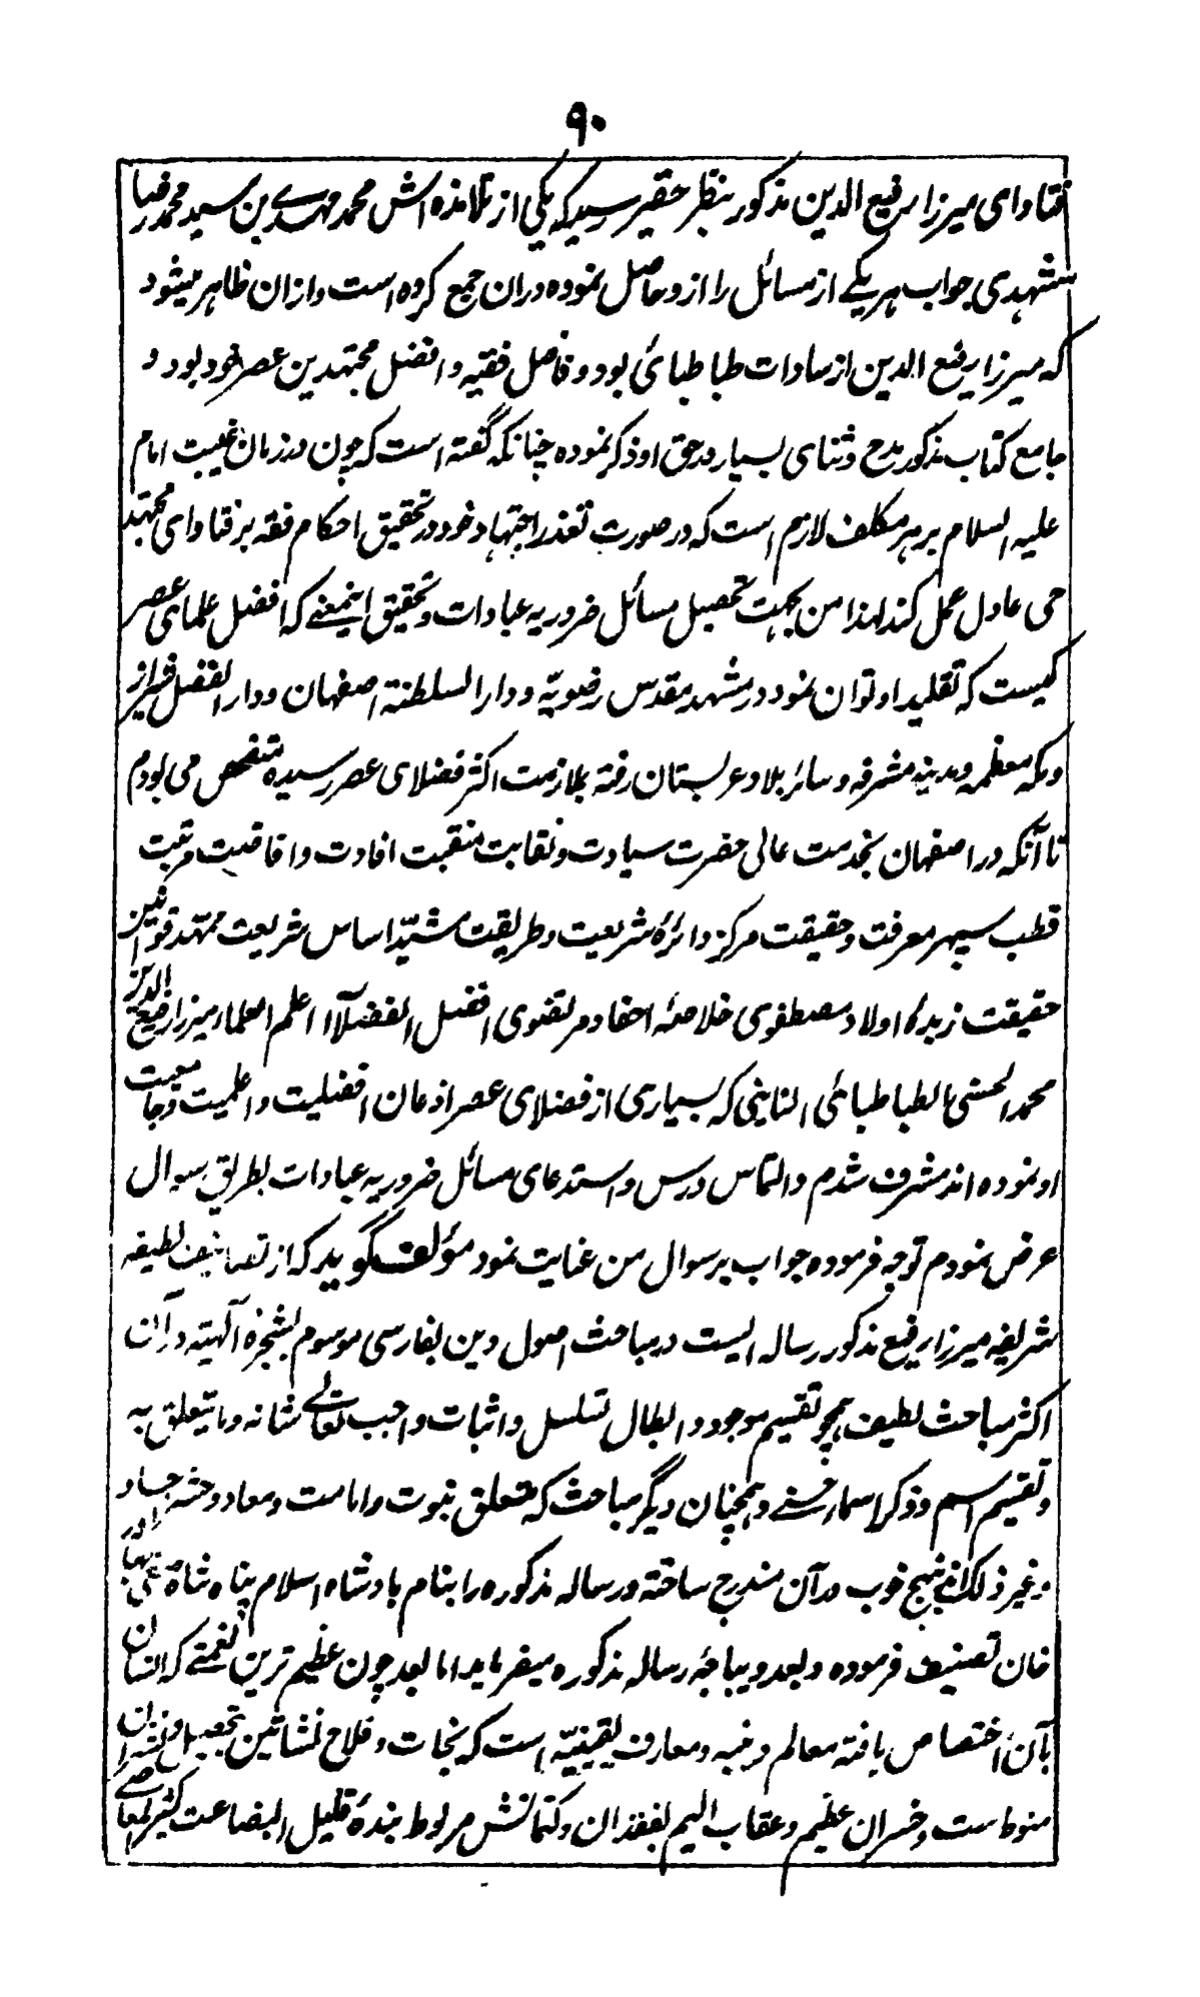 ۹۰
فتاوای میرزا رفیع الدین مذکور بنظر حقیر رسید که یکی از تلامذه اش محمد مهدی بن سید محمد رضا
مشهدی جواب هر یکے از مسائل را ازو حاصل نموده دران جمع کرده است و ازان ظاهر میشود
که میرزا رفیع الدین از سادات طباطبائی بود و فاضل فقیه و افضل مجتهدین عصر خود بود و
جامع کتاب مذکور مدح و ثنای بسیار در حق او ذکر نموده چنانکه گفته است که چون در زمان غیبت امام
علیه السلام بر هر مکلف لازم است که در صورت تعذر اجتهاد خود در تحقیق احکام فقه بر فتاوای مجتهد
حی عادل عمل کند لهذا من بجهت تحصیل مسائل ضروریه عبادات و تحقیق اینمعنے که افضل علمای عصر
کیست که تقلید او توان نمود در مشهد مقدس رضویّه و دار السلطنة اصفهان و دار الفضل شیراز
و مکه معظمه و مدینه مشرفه و سائر بلاد عربستان رفته بملازمت اکثر فضلای عصر رسیده متفحص می بودم
تا آنکه در اصفهان بخدمت عالی حضرت سیادت و نقابت منقبت افادت و افاضت مرتبت
قطب سپهر معرفت و حقیقت مرکز دائرهٔ شریعت و طریقت مشیّد اساس شریعت ممهّد قوانین
حقیقت زبدهٔ اولاد مصطفوی خلاصهٔ احفاد مرتضوی افضل الفضلآء اعلم العلماء میرزا رفیع الدین
محمد الحسنی الطباطبائی النائینی که بسیاری از فضلای عصر اذعان افضلیت و اعلمیت و جامعیت
او نموده اند مشرف شدم و التماس درس و استدعای مسائل ضروریه عبادات بطریق سوال
عرض نمودم توجه فرموده جواب بر سوال من عنایت نمود مؤلف گوید که از تصانیف لطیفه
شریفه میرزا رفیع مذکور رساله ایست در مباحث اصول دین بفارسی موسوم بشجرهٔ آلهیّه در آن
اکثر مباحث لطیف همچو تقسیم موجود و ابطال تسلسل و اثبات واجب تعالے شانه و ما یتعلق به
و تقسیم اسم و ذکر اسماء حسنے و همچنان دیگر مباحث که متعلق نبوت و امامت و معاد و حشر اجساد
و غیر ذلک بنهج خوب در آن مندرج ساخته و رساله مذکوره را بنام بادشاه اسلام پناه شاه
خان تصنیف فرموده و بعد دیباچهٔ رساله مذکوره میفرماید اما بعد چون عظیم ترین نعمتے که انسان
بآن اختصاص یافته معالم دینیه و معارف یقینیّه است که نجات و فلاح نشاتین بتحصیل
منوط است و خسران عظیم و عقاب الیم بفقدان و کتمانش مربوط بندهٔ قلیل البضاعت کثیر المعاصے